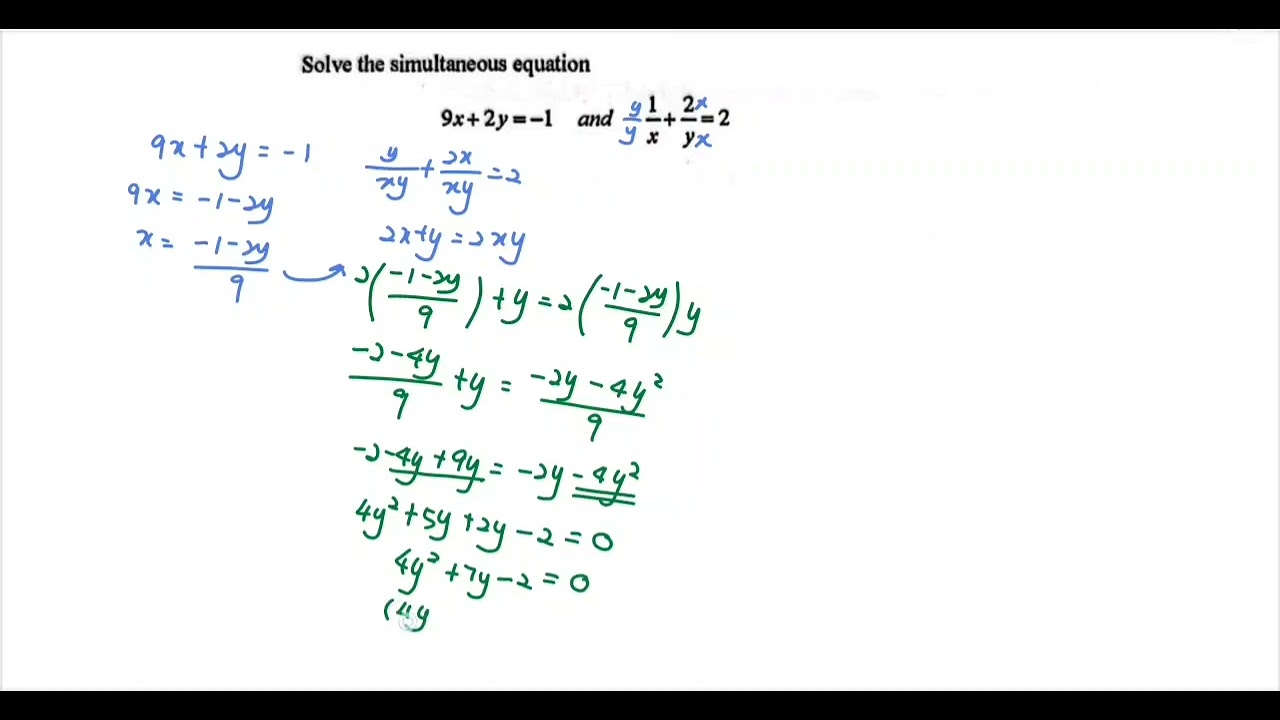 Solve the simultaneous equation
9x+2y=-1 and y/y 1/x + 2x/yx = 2
9x + 2y = -1
9x = -1-2y
x = (-1-2y)/9
y/xy + 2x/xy = 2
2x+y = 2xy
2((-1-2y)/9) + y = 2((-1-2y)/9)y
(-2-4y)/9 + y = (-2y-4y²)/9
-2-4y+9y = -2y-4y²
4y²+5y+2y-2=0
4y²+7y-2=0
(4y